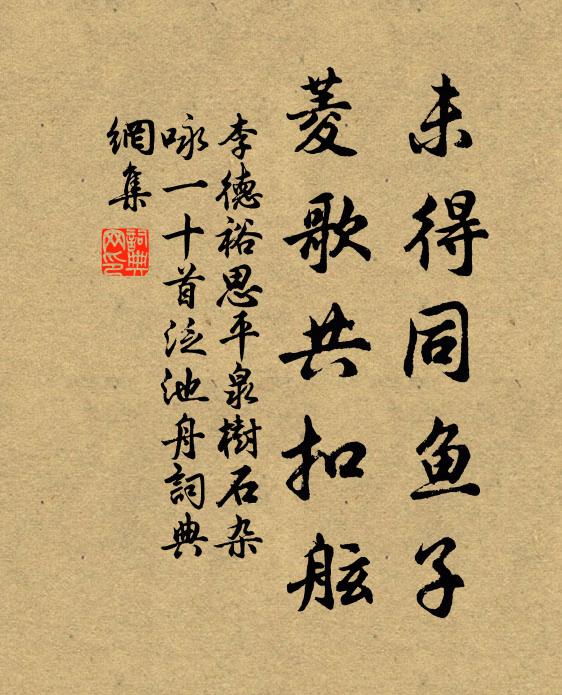 未得同鱼子
菱歌共扣舷
李德裕思平泉樹石杂
咏一十首泛池舟詞典
網集
詞典
网印